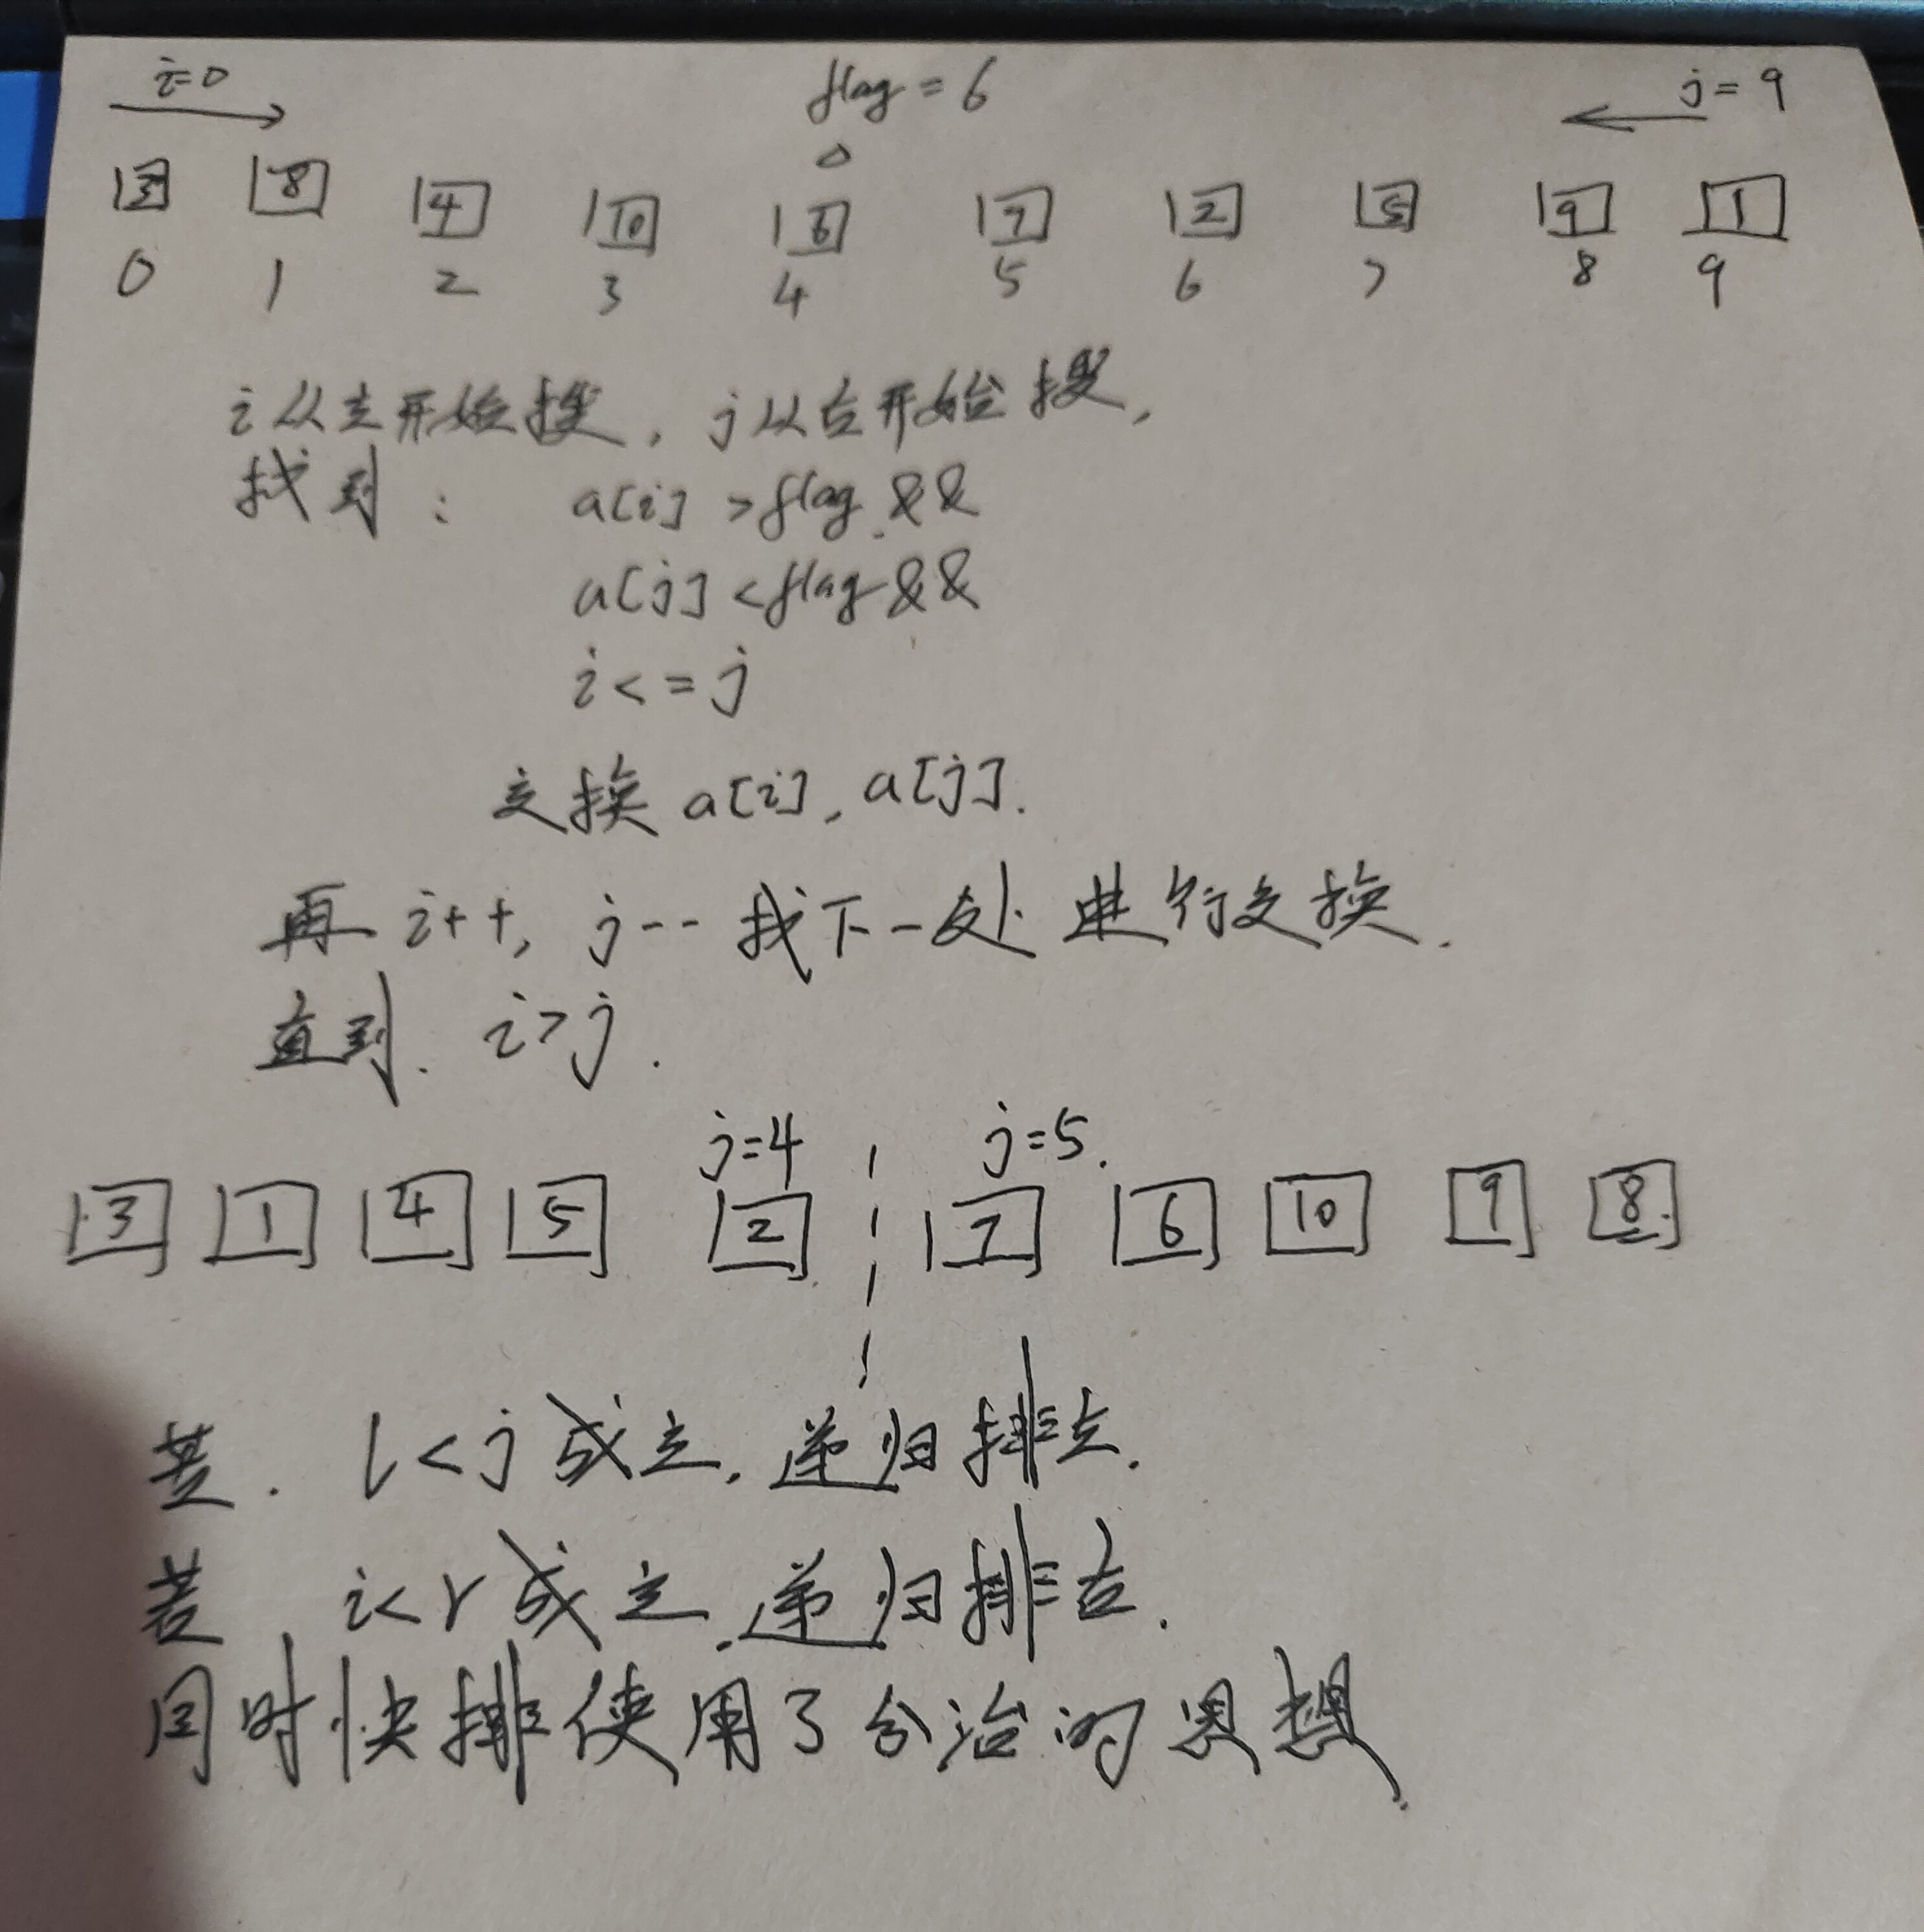 i=0 flag = 6 j=9
3 8 4 10 6 7 2 5 9 1
0 1 2 3 4 5 6 7 8 9
i从左开始搜，j从右开始搜，
找到： a[i] >flag &&
a[j] <flag &&
i<=j
交换 a[i], a[j].
再 i++, j-- 找下一处进行交换.
直到. i>j.
j=4 j=5.
3 1 4 5 2 7 6 10 9 8
若. l<j成立. 递归排左.
若 i<r成立. 递归排右.
同时快排使用了分治的思想.